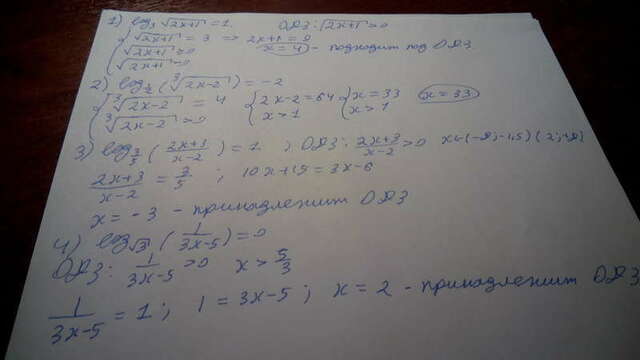 1) log₃ √(2x+1) = 1. ОДЗ: √(2x+1) > 0
{ √(2x+1) = 3 ⇒ 2x+1 = 9
√(2x+1) > 0 x = 4 – подходит под ОДЗ
√(2x+1) > 0
2) log_{1/2} (∛(2x-2)) = -2
{ ∛(2x-2) = 4 { 2x-2 = 64 { x = 33 x = 33
∛(2x-2) > 0 x > 1 x > 1
3) log_{3/5} ((2x+3)/(x-2)) = 1 ; ОДЗ: (2x+3)/(x-2) > 0 x ∈ (-∞; -1,5) (2; +∞)
(2x+3)/(x-2) = 3/5 ; 10x+15 = 3x-6
x = -3 – принадлежит ОДЗ
4) log_{√3} (1/(3x-5)) = 0
ОДЗ: 1/(3x-5) > 0 x > 5/3
1/(3x-5) = 1 ; 1 = 3x-5 ; x = 2 – принадлежит ОДЗ